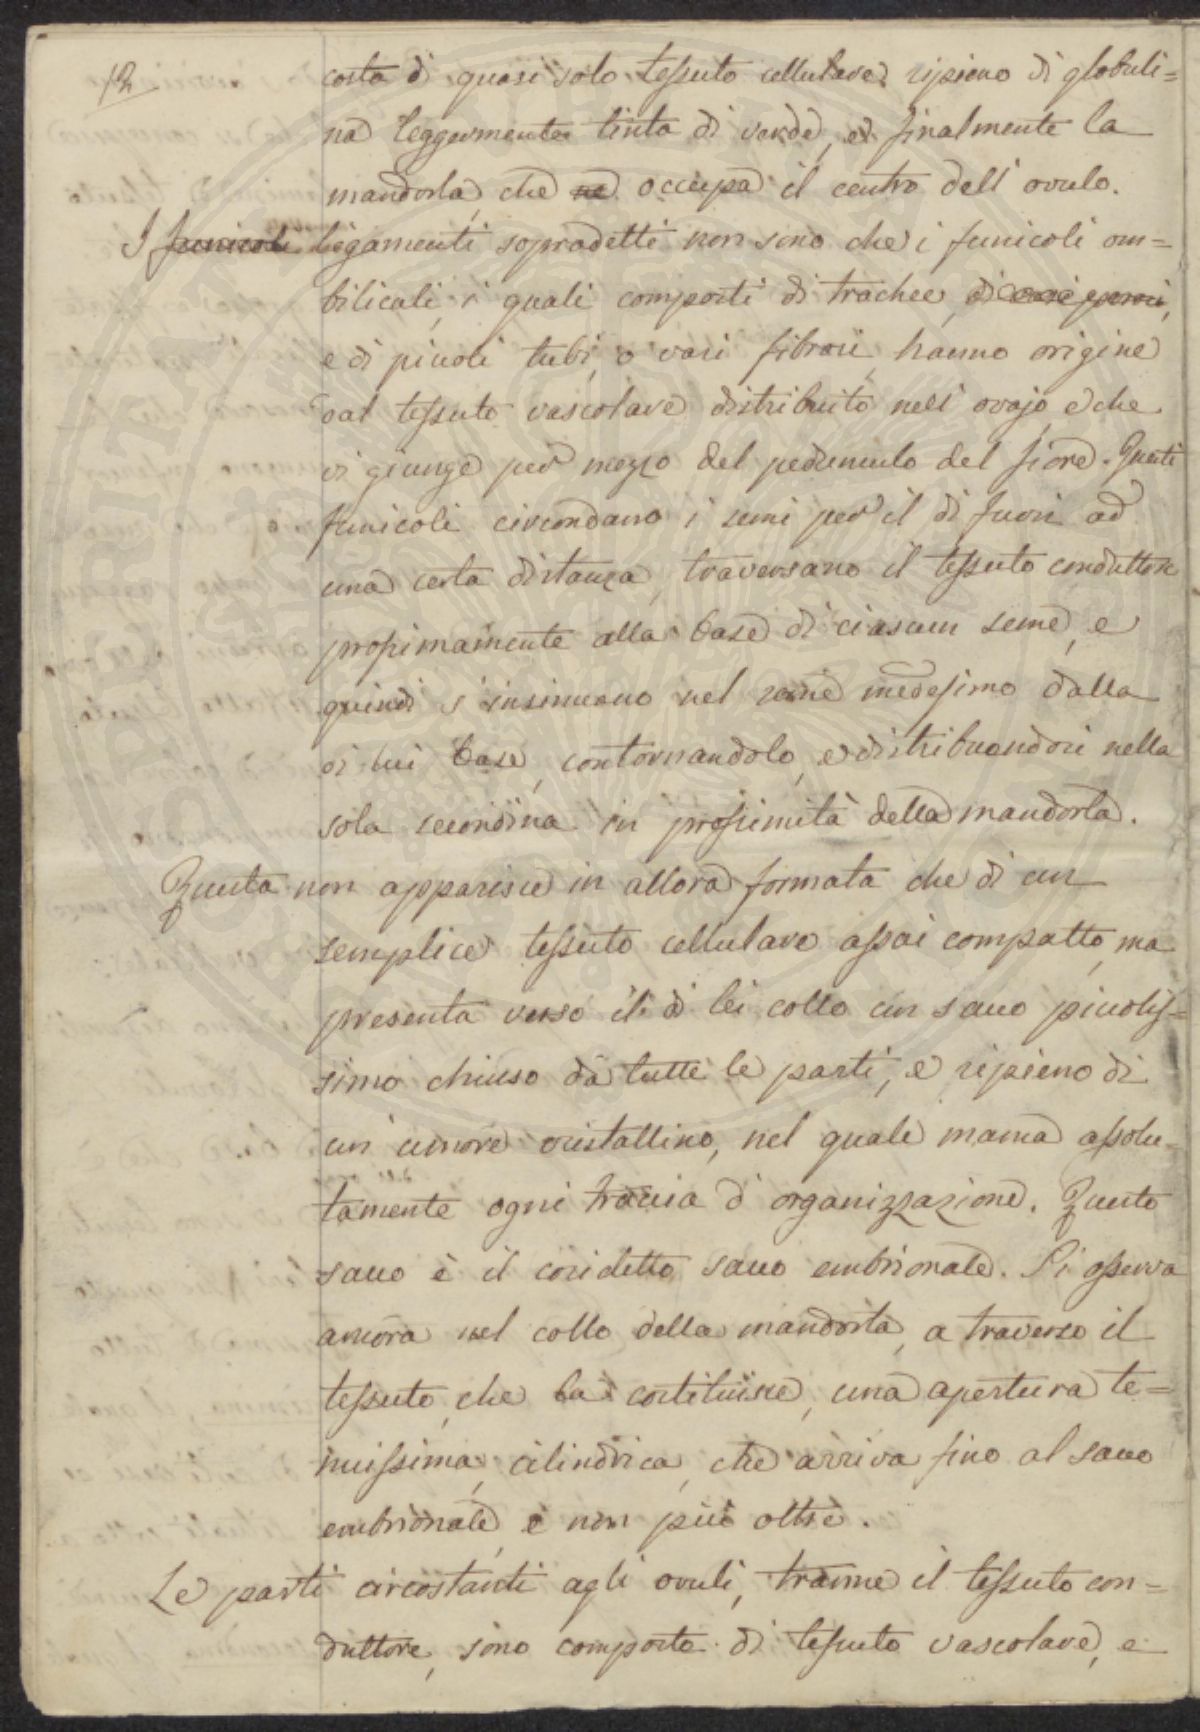 12
costa di quasi solo tessuto cellulare ripieno di globuli=
na leggermente tinta di verde, e finalmente la
mandorla, che ne occupa il centro dell' ovulo.
I funicoli legamenti sopradetti non sono che i funicoli om=
bilicali, i quali composti di trachee, di
e di piccoli tubi, o vasi fibrosi, hanno origine
dal tessuto vascolare distribuito nell' ovajo, e che
vi giunge per mezzo del peduncolo del fiore. Questi
funicoli circondano i semi per il di fuori ad
una certa distanza, traversano il tessuto conduttore
prossimamente alla base di ciascun seme, e
quindi s' insinuano nel seme medesimo dalla
di lui base, contornandolo, e distribuendosi nella
sola secondina in prossimità della mandorla.
Questa non apparisce in allora formata che di un
semplice tessuto cellulare assai compatto, ma
presenta verso il di lei collo un sacco piccolis=
simo chiuso da tutte le parti, e ripieno di
un' umore cristallino, nel quale manca assolu=
tamente ogni traccia d' organizzazione. Questo
sacco è il cosidetto sacco embrionale. Si osserva
ancora nel collo della mandorla, a traverso il
tessuto, che la costituisce, una apertura te=
nuissima, cilindrica, che arriva fino al sacco
embrionale, e non più oltre.
Le parti circostanti agli ovuli, tranne il tessuto con=
duttore, sono composte di tessuto vascolare, e